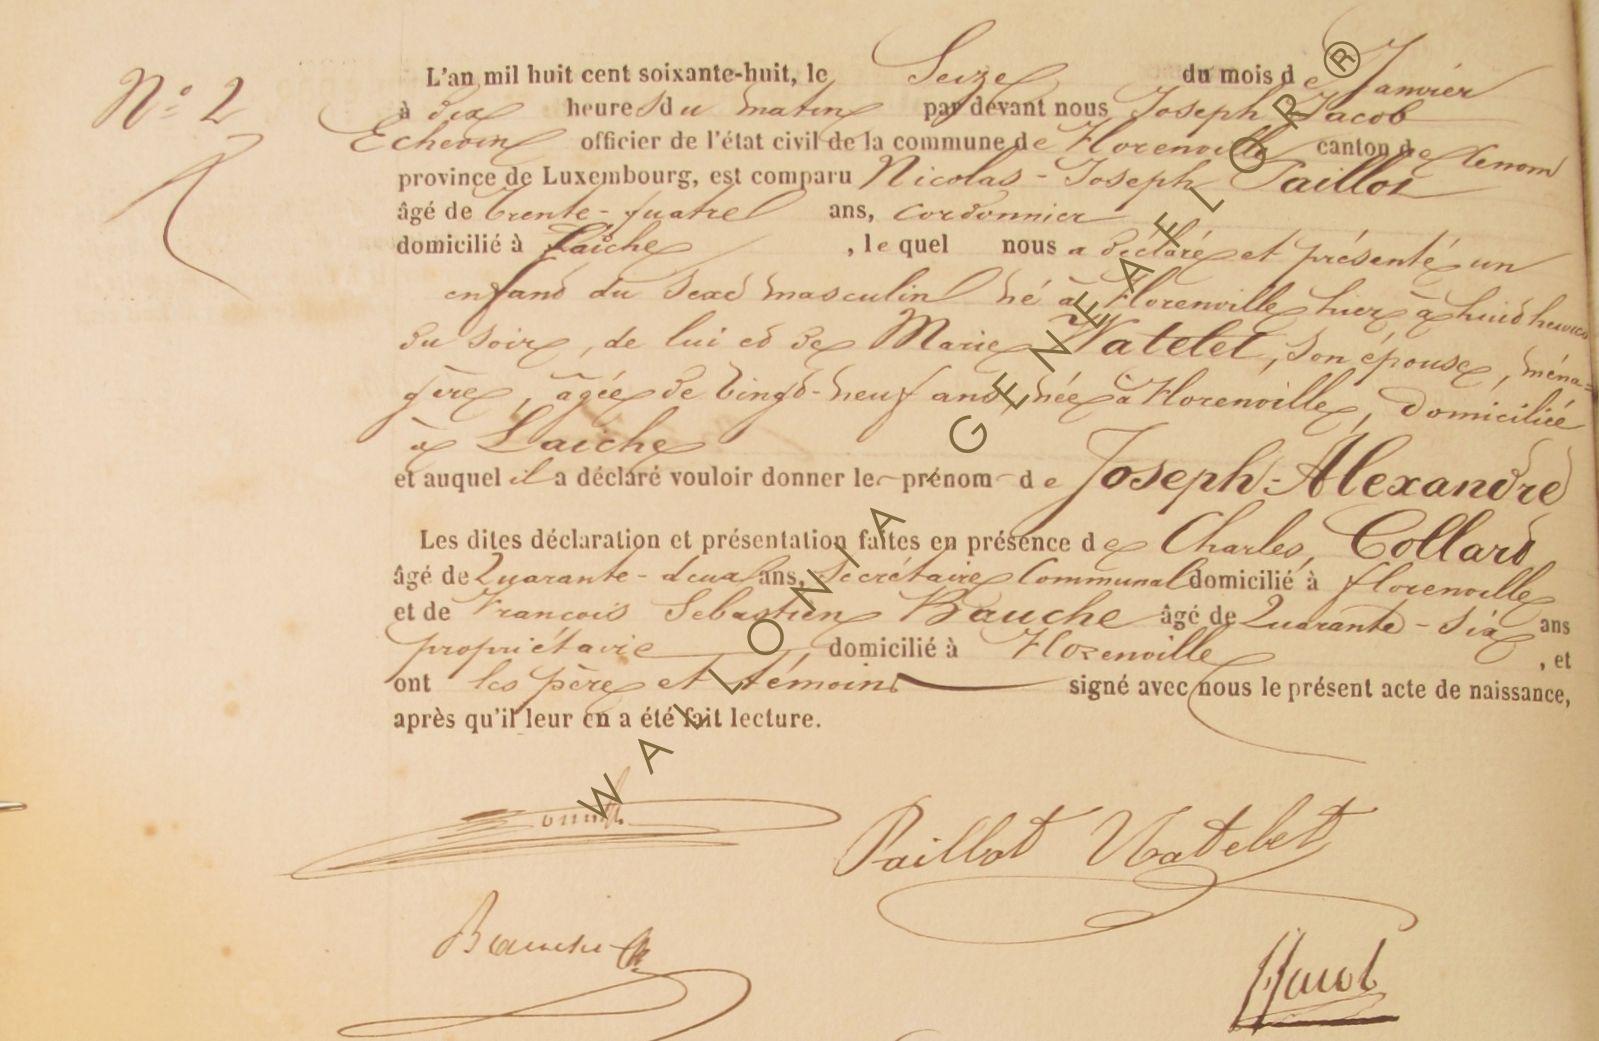 N° 2
L'an mil huit cent soixante-huit, le Seize du mois de Janvier
à dix heures du matin par devant nous Joseph Jacob
Echevin officier de l'état civil de la commune de Florenville canton de idem
province de Luxembourg, est comparu Nicolas-Joseph Paillot
âgé de trente-quatre ans, cordonnier
domicilié à Laiche, lequel nous a déclaré et présenté un
enfant du sexe masculin né à Florenville hier à huit heures
du soir, de lui et de Marie Watelet, son épouse, ména-
gère, âgée de vingt-neuf ans née à Florenville, domiciliée
à Laiche
et auquel il a déclaré vouloir donner le prénom de Joseph-Alexandre
Les dites déclaration et présentation faites en présence de Charles Collard
âgé de Quarante-deux ans, Secrétaire Communal domicilié à florenville
et de François Sebastien Bauche âgé de Quarante-six ans
propriétaire, domicilié à Florenville, et
ont les père et témoins signé avec nous le présent acte de naissance,
après qu'il leur en a été fait lecture.
Paillot Watelet
Jacob
WALLONIA GENEAFLOR®